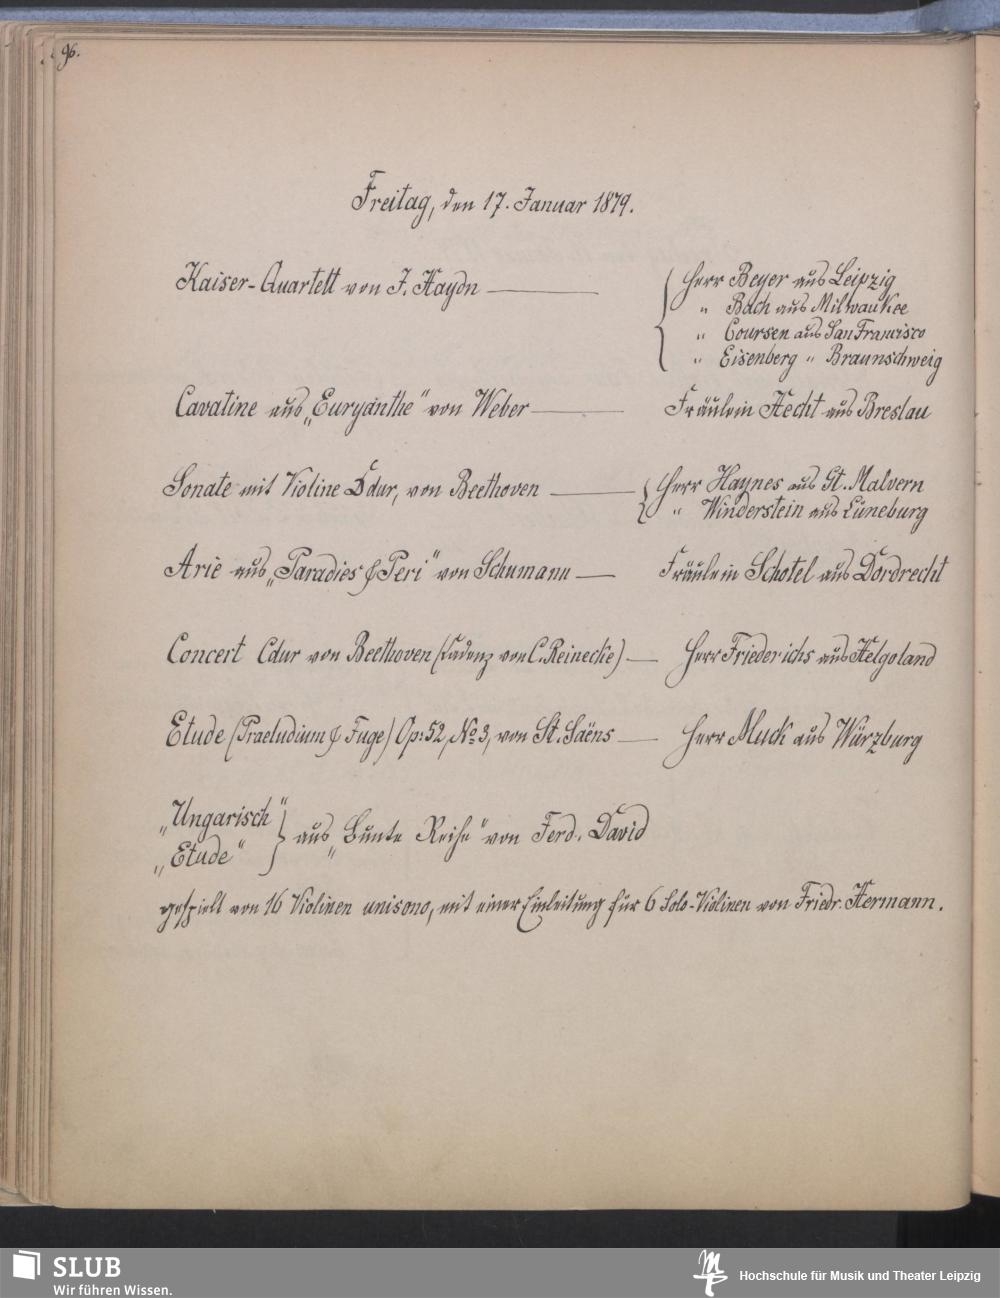 96.
Freitag, den 17. Januar 1879.
Kaiser-Quartett von J. Haydn — Herr Beyer aus Leipzig
" Bach aus Milwaukee
" Coursen aus San Francisco
" Eisenberg " Braunschweig
Cavatine aus „Euryanthe" von Weber — Fräulein Hecht aus Breslau
Sonate mit Violine Ddur, von Beethoven — Herr Haynes aus Gt. Malvern
" Winderstein aus Lüneburg
Arie aus „Paradies & Peri" von Schumann — Fräulein Schotel aus Dordrecht
Concert Cdur von Beethoven (Cadenz von C. Reinecke) — Herr Friederichs aus Helgoland
Etude (Praeludium & Fuge) Op: 52, No 3, von St. Saëns — Herr Muck aus Würzburg
„Ungarisch"
„Etude" } aus „Bunte Reihe" von Ferd. David
gespielt von 16 Violinen unisono, mit einer Einleitung für 6 Solo-Violinen von Friedr. Hermann.
SLUB
Wir führen Wissen.
Hochschule für Musik und Theater Leipzig